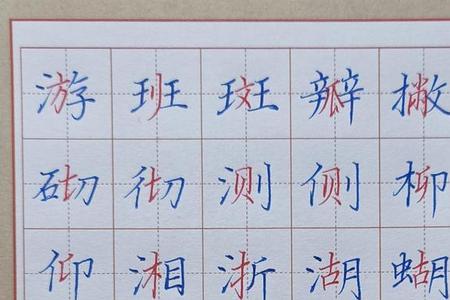 游班斑瓣撇
砌彻测侧柳
仰湘浙湖蝴